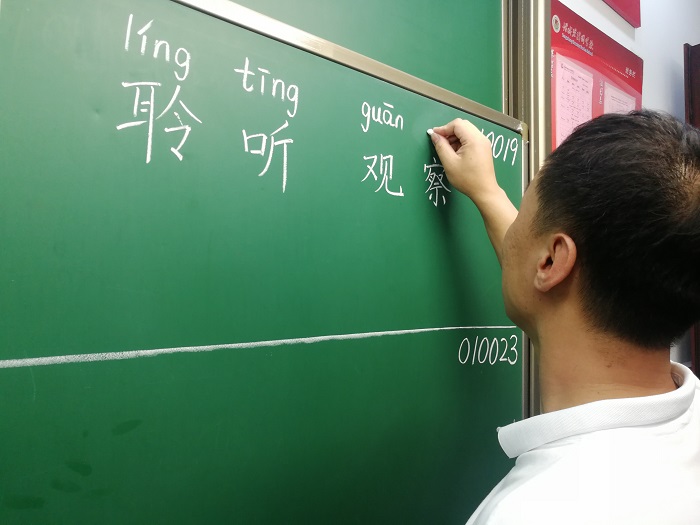 líng tīng guān
聆听 观察
0019
010023